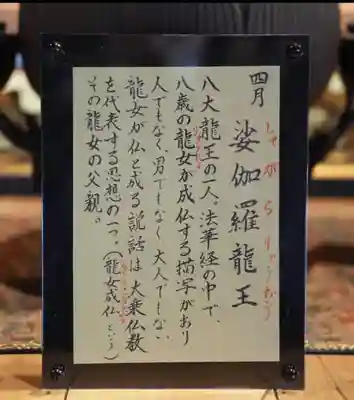 四月 娑伽羅龍王
しゃがらりゅうおう
八大龍王の一人。法華経の中で、
八歳の龍女が成仏する描写があり
人でもなく、男でもなく大人でもない
龍女が仏と成る説話は大乗仏教
を代表する思想の一つ。(龍女成仏という)
その龍女の父親。